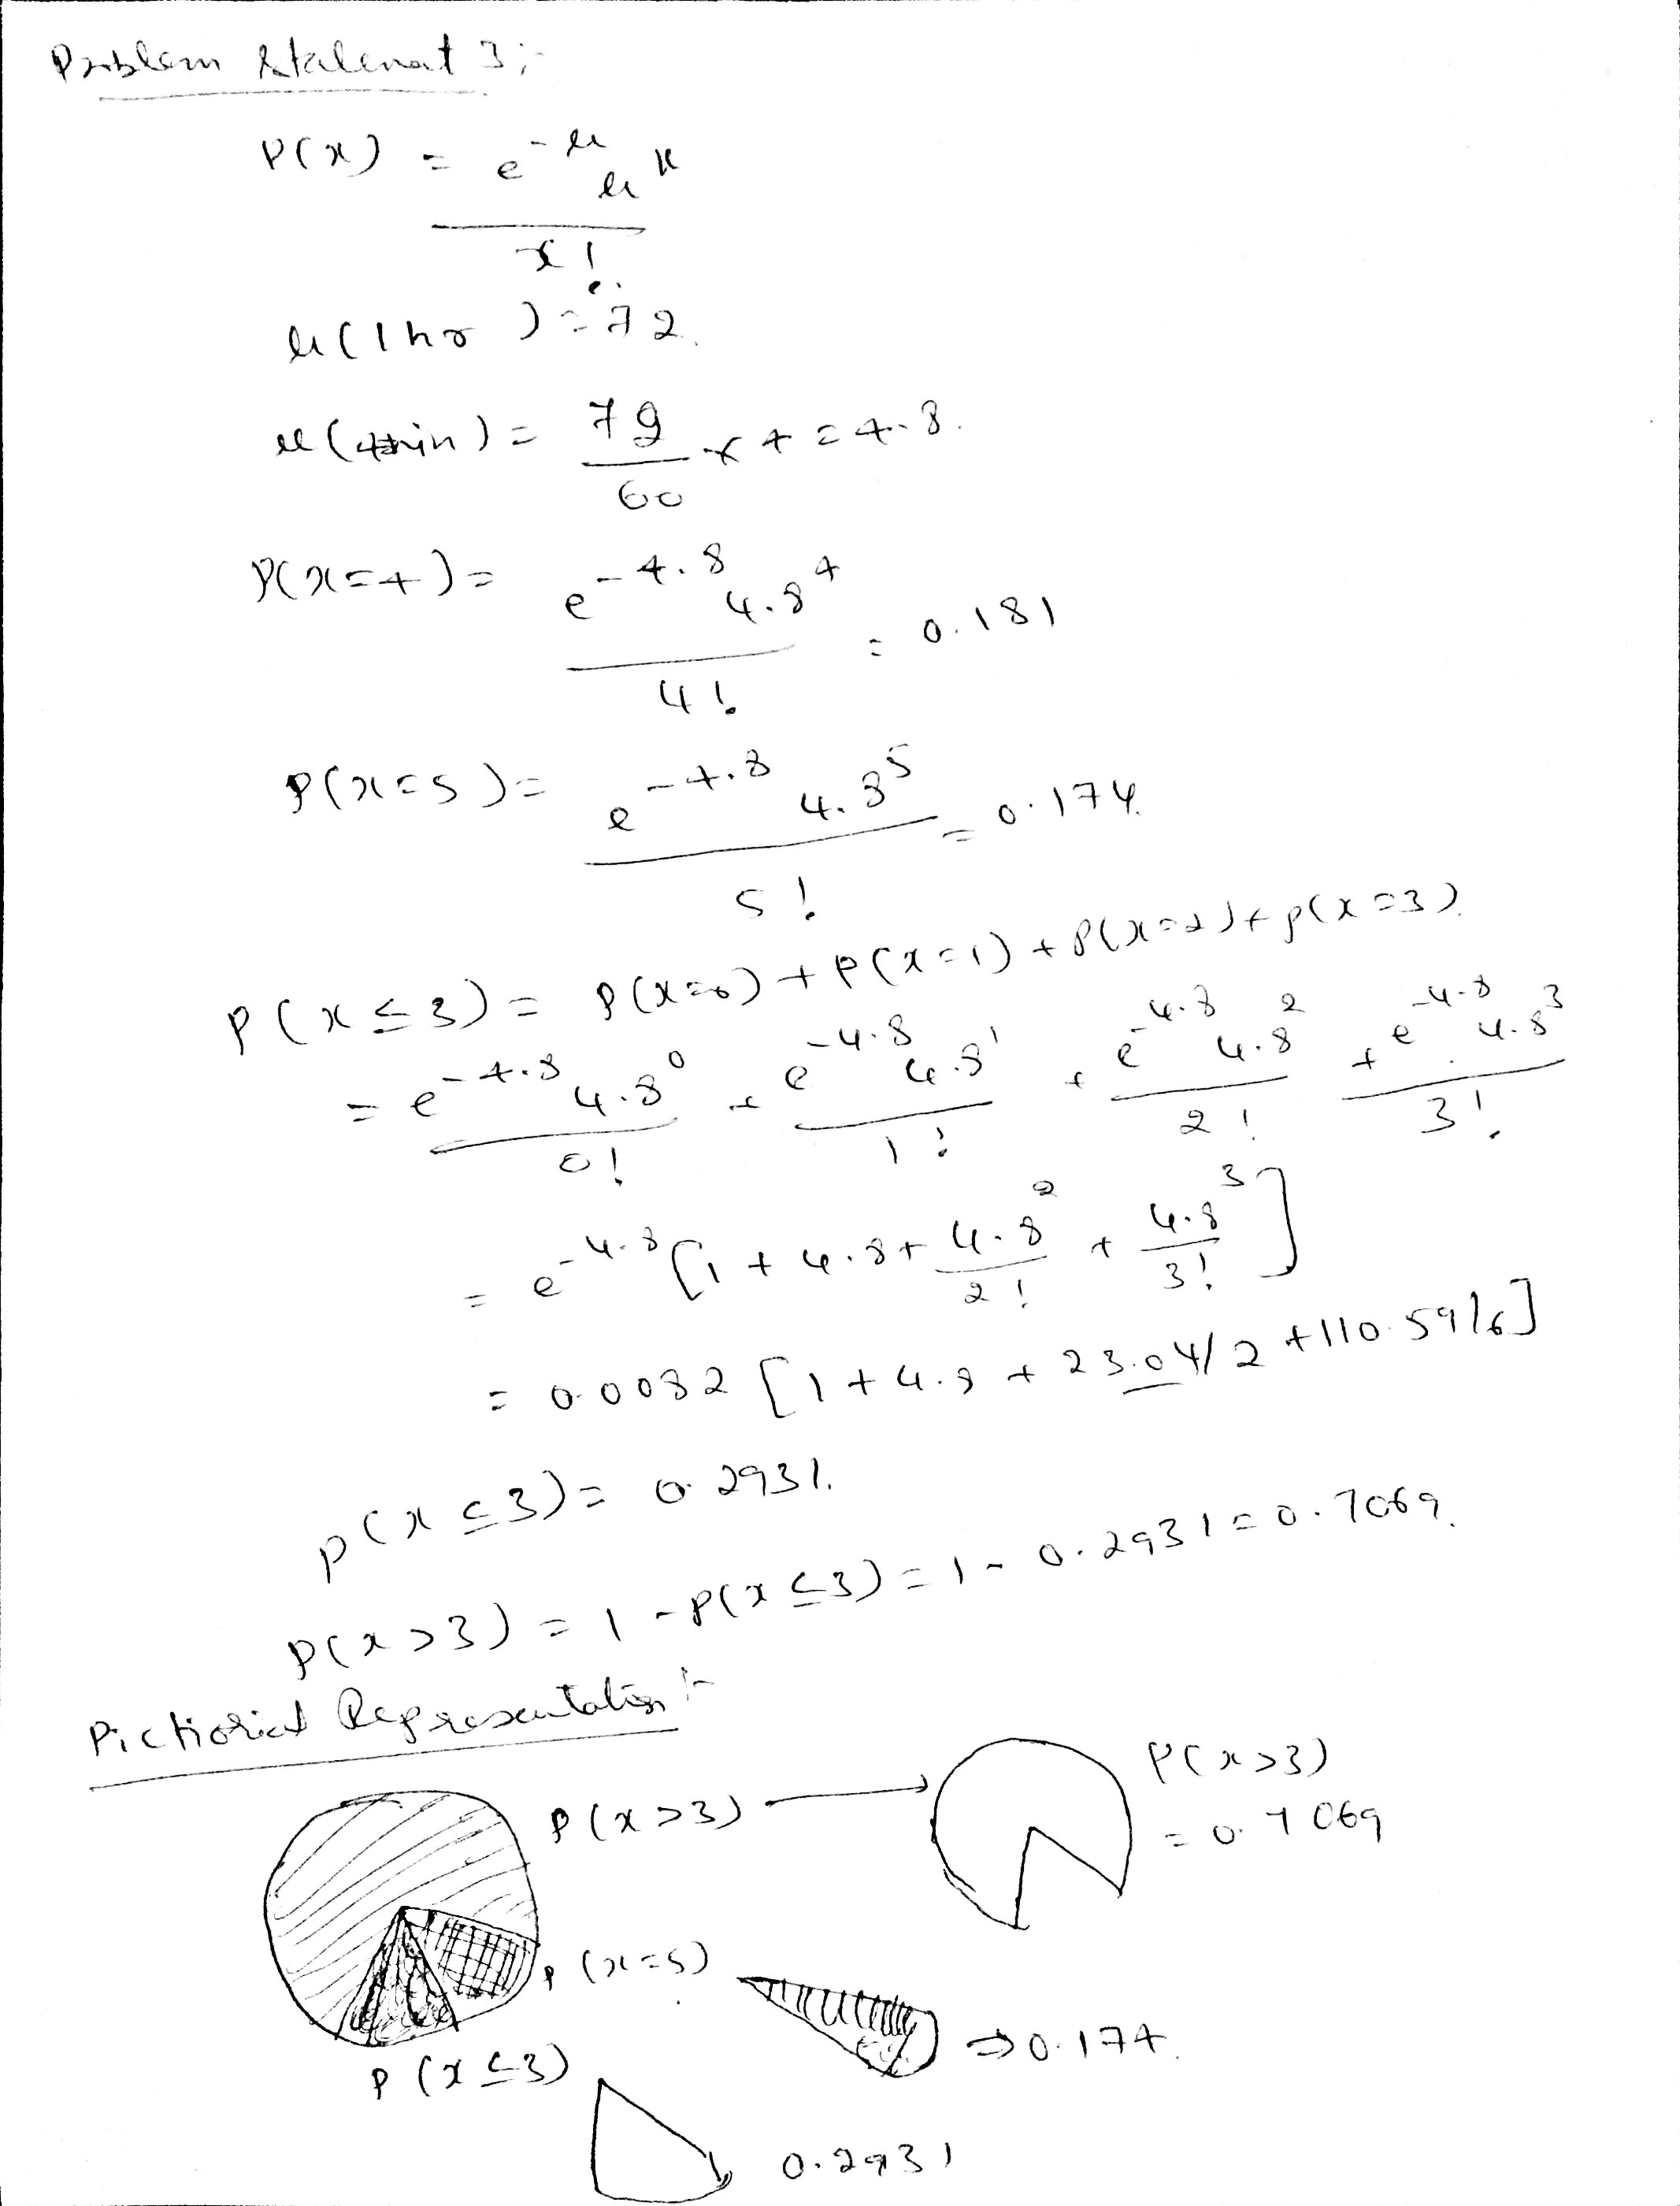 Problem Statement 3:-
P(x) = e^-μ μ^x / x!
μ(1hr) = 72.
μ(4min) = 72/60 x 4 = 4.8.
P(x=4) = e^-4.8 4.8^4 / 4! = 0.181
P(x=5) = e^-4.8 4.8^5 / 5! = 0.174.
P(x≤3) = P(x=0) + P(x=1) + P(x=2) + P(x=3)
= e^-4.8 4.8^0 / 0! + e^-4.8 4.8^1 / 1! + e^-4.8 4.8^2 / 2! + e^-4.8 4.8^3 / 3!
= e^-4.8 [1 + 4.8 + 4.8^2 / 2! + 4.8^3 / 3!]
= 0.0082 [1 + 4.8 + 23.04/2 + 110.59/6]
P(x≤3) = 0.2931.
P(x>3) = 1 - P(x≤3) = 1 - 0.2931 = 0.7069.
Pictiorical Representation:-
P(x>3) → P(x>3)
= 0.7069
P(x=5)
⇒ 0.174.
P(x≤3)
0.2931